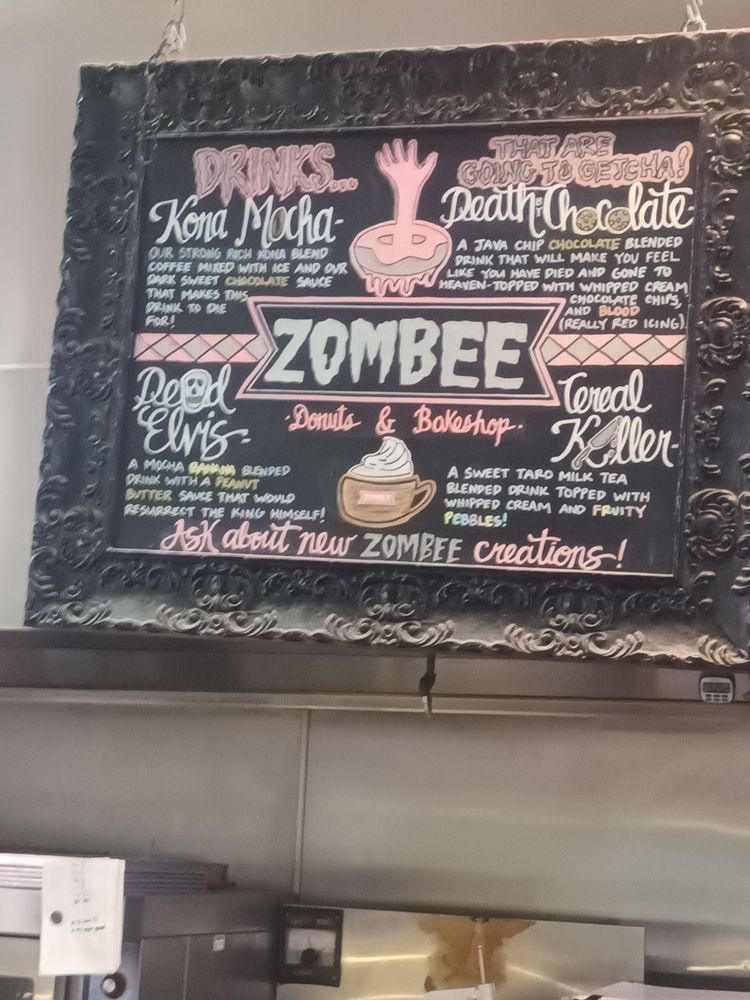 DRINKS...
THAT ARE
GOING TO GETCHA!
Kona Mocha-
OUR STRONG RICH KONA BLEND
COFFEE MIXED WITH ICE AND OUR
DARK SWEET CHOCOLATE SAUCE
THAT MAKES THIS
DRINK TO DIE
FOR!
Death By Chocolate-
A JAVA CHIP CHOCOLATE BLENDED
DRINK THAT WILL MAKE YOU FEEL
LIKE YOU HAVE DIED AND GONE TO
HEAVEN-TOPPED WITH WHIPPED CREAM
CHOCOLATE CHIPS,
AND BLOOD
(REALLY RED ICING)
ZOMBEE
·Donuts & Bakeshop·
Dead
Elvis-
A MOCHA BANANA BLENDED
DRINK WITH A PEANUT
BUTTER SAUCE THAT WOULD
RESURRECT THE KING HIMSELF!
Cereal
Killer-
A SWEET TARO MILK TEA
BLENDED DRINK TOPPED WITH
WHIPPED CREAM AND FRUITY
PEBBLES!
ZOMBEE
Ask about new ZOMBEE creations!